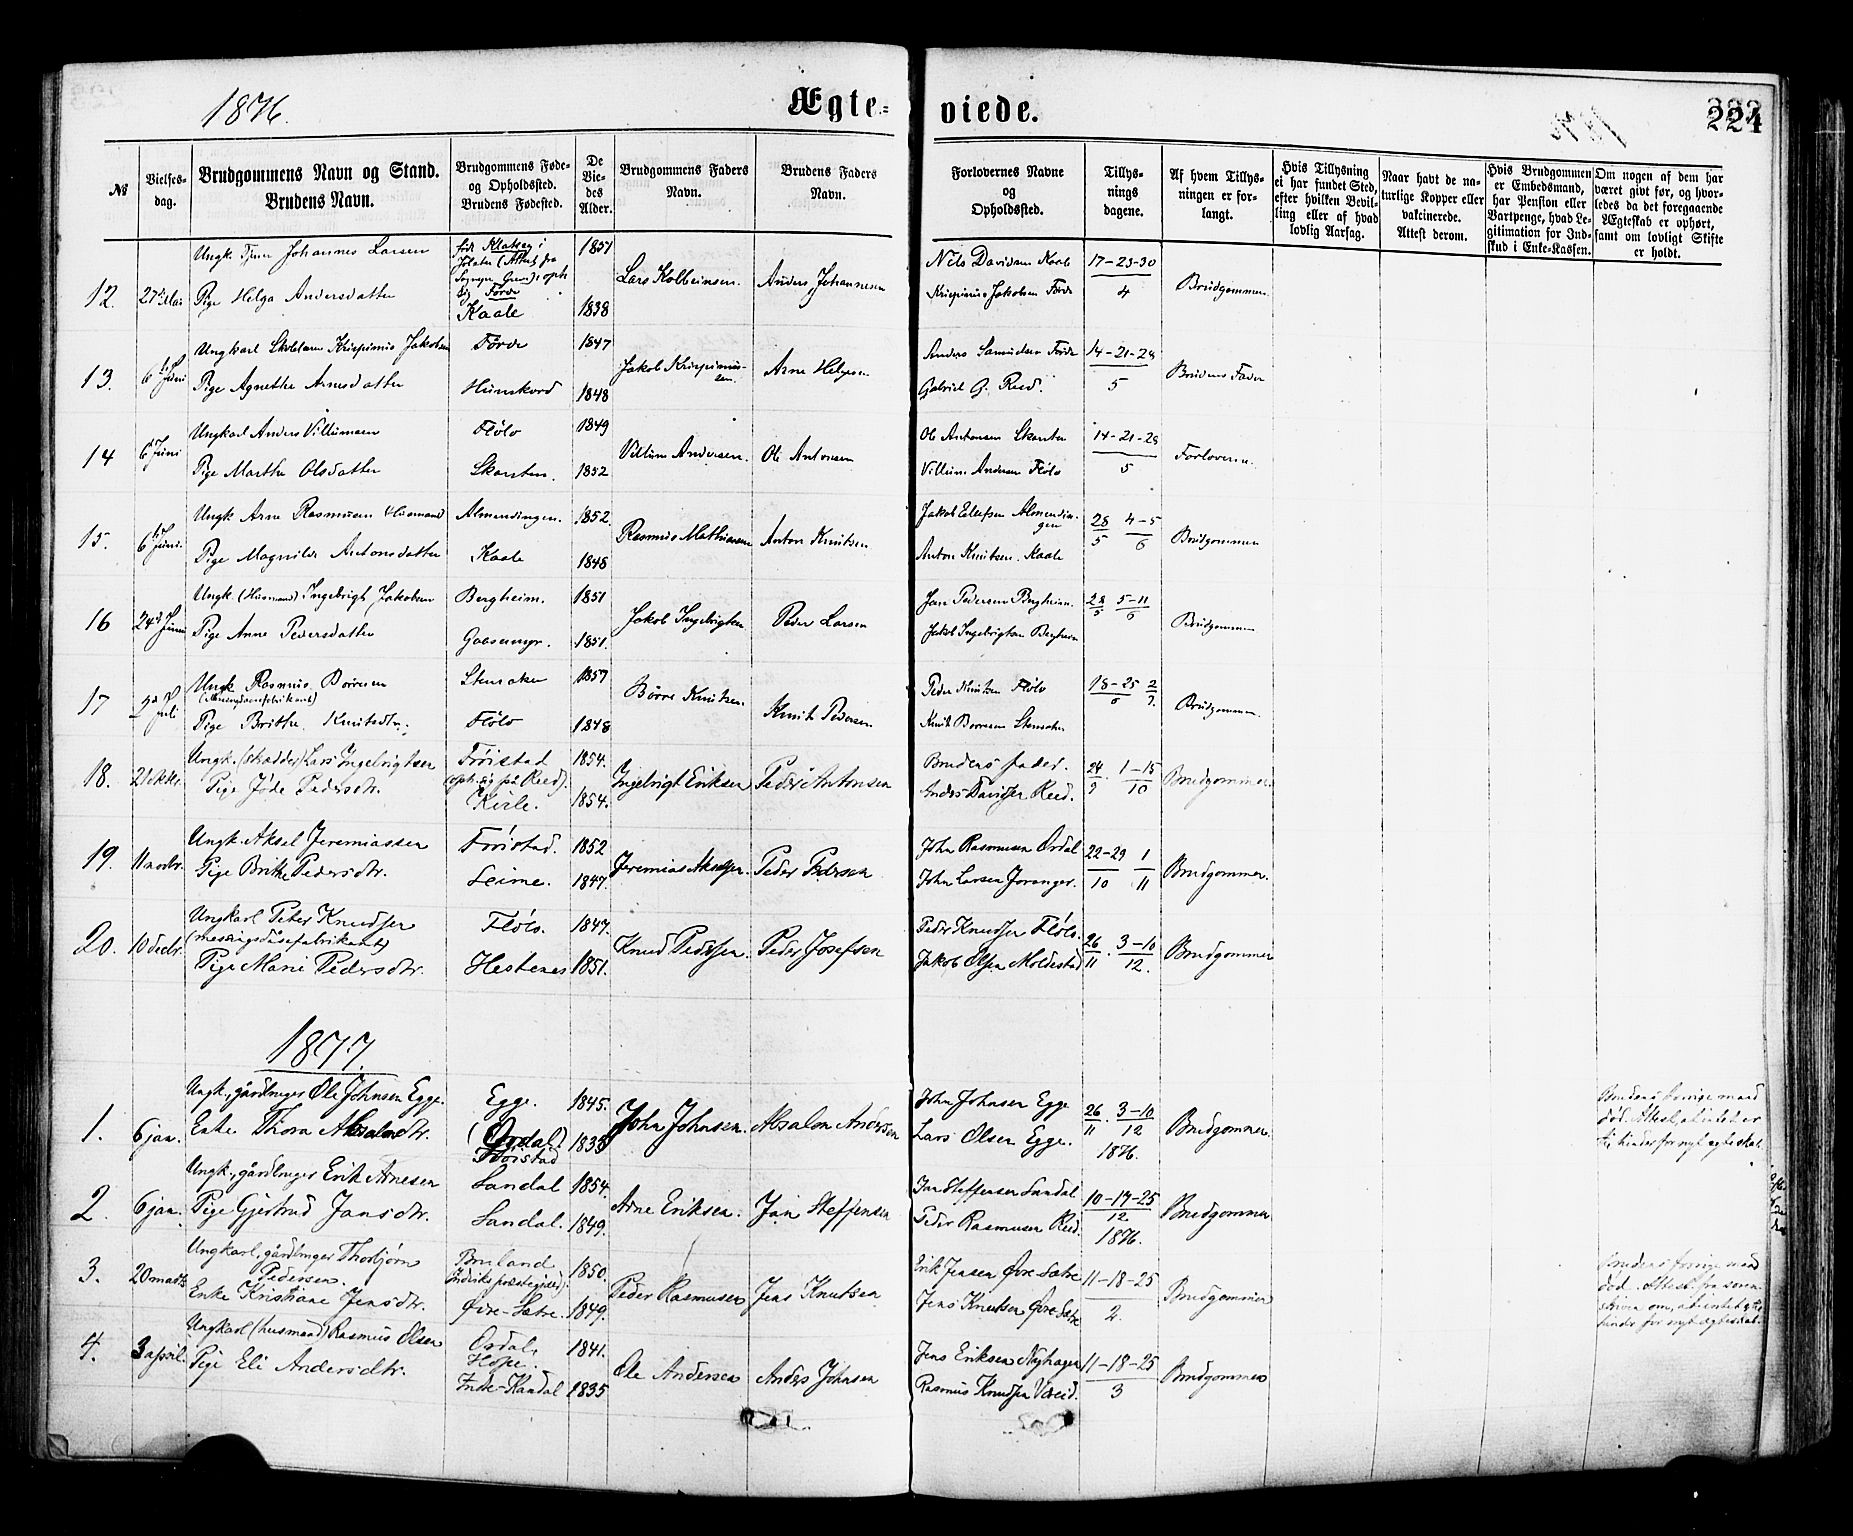 1876.
Ægte-
viede.
224
№
Vielses-
dag.
Brudgommens Navn og Stand.
Brudens Navn.
Brudgommens Føde-
og Opholdssted.
Brudens Fødested.
De
Vie-
des
Alder.
Brudgommens Faders
Navn.
Brudens Faders
Navn.
Forlovernes Navne
og
Opholdssted.
Tillys-
nings
dagene.
Af hvem Tillys-
ningen er for-
langt.
Hvis Tillysning
ei har fundet Sted,
efter hvilken Bevil-
ling eller af hvad
lovlig Aarsag.
Naar havt de na-
turlige Kopper eller
vakcinerede.
Attest derom.
Hvis Brudgommen
er Embedsmand,
har Pension eller
Vartpenge, hvad Le-
gitimation for Ind-
skud i Enke-Kassen.
Om nogen af dem har
været givt før, og hvor-
ledes da det foregaaende
Ægteskab er ophørt,
samt om lovligt Skifte
er holdt.
12. 27de Mai
Ungk. Tjener Johannes Larsen
Pige Helga Andersdatter
Førde
Kaale
1851
1838
Lars Kolbeinsen. Anders Johannesen
Nils Davidsen Kaale
Krispinus Jakobsen Førde
17-23-30
4
Brudgommen
13. 6te Juni
Ungkarl Skolelærer Krispinus Jakobsen
Pige Agnethe Arnesdatter
Førde
Hunskord
1847
1848
Jakob Krispinus-
sen. Arne Helgesen
Anders Samuelsen Førde
Gabriel G. Reed.
14-21-28
5
Brudens Fader
14 6te Juni
Ungkarl Anders Villumsen
Pige Marthe Olsdatter
Flølo
Skarsten.
1849
1852
Villum Andersen. Ole Antonsen
Ole Antonsen Skarsten
Villum Andersen Flølo
14-21-28
5
Forloverne.
15. 6te Juni.
Ungk Arne Rasmusen Husmand
Pige Magnilde Antonsdatter
Almendingen.
Kaale
1852.
1848
Rasmus Mathiasen Anton Knutsen
Jakob Ellefsen Almendin-
gen
Anton Knutsen Kaale
28 4-5
5 6
Brudgommen
16 24de Juni
Ungk. (Husmand) Ingebrigt Jakobsen
Pige Anne Pedersdatter
Bergheim.
Gaasemyr.
1851
1851.
Jakob Ingebrigtsen Peder Larsen
Jan Pedersen Bergheim.
Jakob Ingebrigtsen Bergheim
28 5-11
5 6
Brudgommen
17 2den Juli
Ungk Rasmus Børresen
Pige Brithe Knutsdtr.
Stensaker
Flølo
1857
1848
Børre Knutsen. Knut Pedersen
Peder Knutsen Flølo
Knut Børresen Stensaker
18-25 2
6 7.
Brudgommen.
18. 21 oktbr.
Ungk. (skrædder) Lars Ingebrigtsen
Pige Jøde Pedersdtr.
Frøistad
(oph. sig på Reed).
Kirle.
1854.
1854.
Ingebrigt Eriksen Peder Antonsen
Brudens fader.
Anders Davidsen Reed.
24 1-15
9 10
Brudgommen
19. 11 novbr.
Ungk. Aksel Jeremiassen
Pige Brithe Pedersdtr.
Frøistad.
Leime.
1852
1847.
Jeremias Akselsen. Peder Pedersen
John Rasmusen Ordal
John Larsen Joranger.
22-29 1
10 11
Brudgommen.
20. 10 decbr.
Ungkarl Peter Knudsen
(messingdåsefabrikant)
Pige Marie Pedersdtr.
Flølo.
Hestenes
1847.
1851.
Knud Pedersen. Peder Josefsen
Peder Knudsen Flølo.
Jakob Olsen Moldestad
26 3-10
11 12.
Brudgommen
1877.
1. 6 jan.
Ungk., gårdbruger Ole Johnsen Egge.
Enke Thora Absalonsdtr.
Egge.
(Ordal)
Frøistad
1845.
1835
John Johnsen. Absalon Andersen
John Johnsen Egge
Lars Olsen Egge.
26 3-10
11 12
1876.
Brudgommen.
Brudens forrige mand
død. Attest, at intet er
til hinder for nyt ægteskab.
2. 6 jan.
Ungk., gårdbruger Erik Arnesen
Pige Gjertrud Jansdtr.
Sandal
Sandal.
1854.
1849.
Arne Eriksen. Jan Steffensen
Jan Steffensen Sandal
Peder Rasmusen Reed.
10-17-25
12
1876.
Brudgommen
3. 20 marts
Ungkarl, gårdbruger Thorbjørn
Pedersen.
Enke Kristiane Jensdtr.
Bruland
(Indviks præstegjæld).
Øvre-Sætre.
1850.
1849.
Peder Rasmusen Jens Knutsen
Erik Jensen Øvre Sætre
Jens Knutsen Øvre Sætre
11-18-25
2.
Brudgommen
Brudens forrige mand
4. 3 april.
Ungkarl (husmand) Rasmus Olsen
Pige Eli Andersdtr.
Ordal,
Hope.
Indre-Kandal
1841.
1835
Ole Andersen Anders Johnsen
Jens Eriksen Nyhagen
Rasmus Knudsen Væreid.
11-18-25
3
Brudgommen